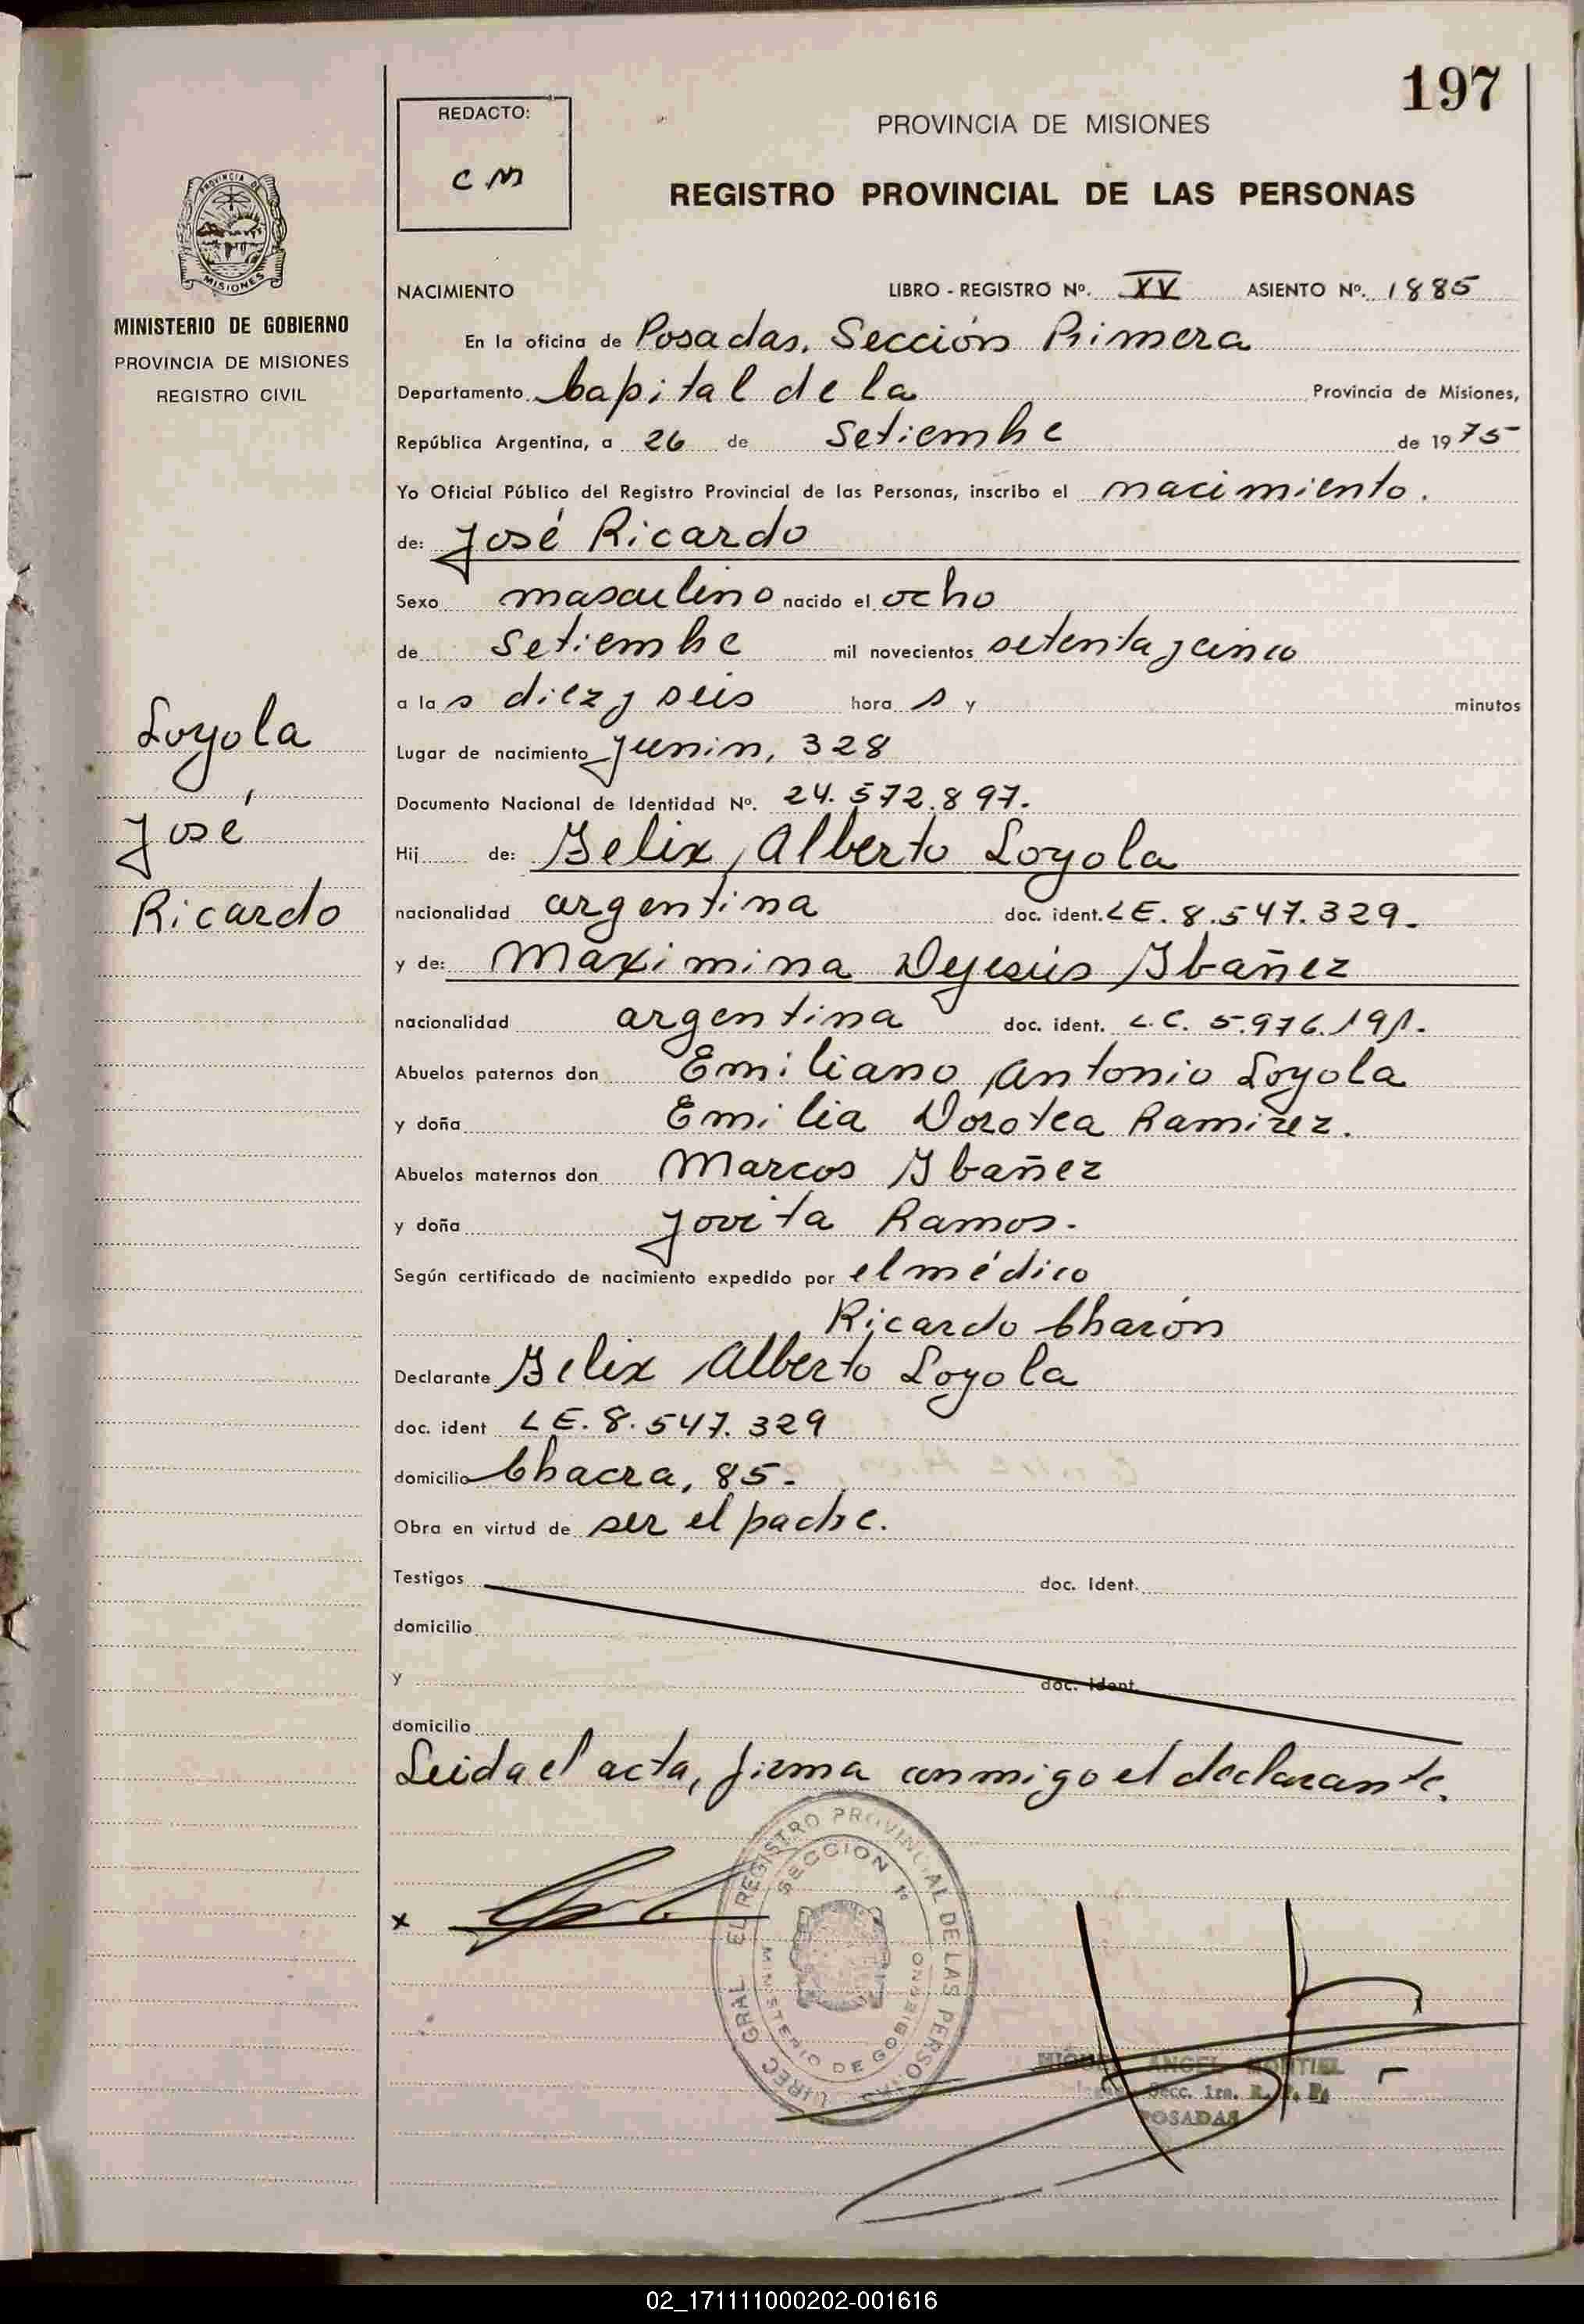 197
REDACTO:
CM
PROVINCIA DE MISIONES
REGISTRO PROVINCIAL DE LAS PERSONAS
PROVINCIA DE
MISIONES
MINISTERIO DE GOBIERNO
PROVINCIA DE MISIONES
REGISTRO CIVIL
Loyola
José
Ricardo
NACIMIENTO LIBRO - REGISTRO Nº. XV ASIENTO Nº. 1885
En la oficina de Posadas, Sección Primera
Departamento Capital de la Provincia de Misiones,
República Argentina, a 26 de Setiembre de 1975
Yo Oficial Público del Registro Provincial de las Personas, inscribo el nacimiento.
de: José Ricardo
Sexo masculino nacido el ocho
de Setiembre mil novecientos setenta y cinco
a las diez y seis horas y minutos
Lugar de nacimiento Junin, 328
Documento Nacional de Identidad Nº. 24.572.897.
Hij de: Felix Alberto Loyola
nacionalidad argentina doc. ident. LE. 8.547.329.
y de: Maximina Dejesús Ibañez
nacionalidad argentina doc. ident. L.C. 5.976.191.
Abuelos paternos don Emiliano Antonio Loyola
y doña Emilia Dorotea Ramirez.
Abuelos maternos don Marcos Ibañez
y doña Jovita Ramos.
Según certificado de nacimiento expedido por el médico
Ricardo Charón
Declarante Felix Alberto Loyola
doc. ident LE. 8.547.329
domicilio Chacra, 85.
Obra en virtud de ser el padre.
Testigos doc. Ident.
domicilio
y doc. Ident.
domicilio
Leida el acta, firma conmigo el declarante.
x
DIREC GRAL EL REGISTRO PROVINCIAL DE LAS PERSONAS
SECCION 1º
MINISTERIO DE GOBIERNO
MIGUEL ANGEL MONTIEL
Secc. 1ra. R. P. P.
POSADAS
02_171111000202-001616